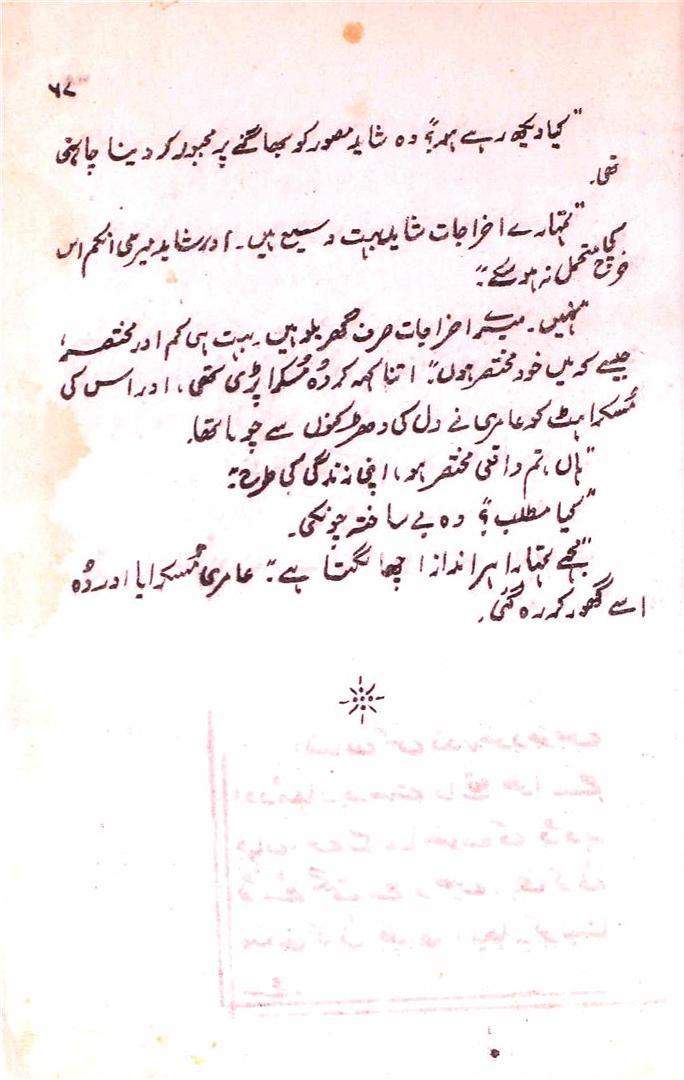 ۶۷
"کیا دیکھ رہے ہو؟" وہ شاید مصور کو بھاگنے پر مجبور کر دینا چاہتی
تھی۔
"تمہارے اخراجات شاید بہت وسیع ہیں۔ اور شاید میری انکم اس
خرچ کی متحمل نہ ہو سکے"۔
"نہیں۔ میرے اخراجات صرف گھریلو ہیں۔ بہت ہی کم اور مختصر،
جیسے کہ میں خود مختصر ہوں"۔ اتنا کہہ کر وُہ مُسکرا پڑی تھی، اور اس کی
مُسکراہٹ کو عامری نے دل کی دھڑکنوں سے چوما تھا۔
"ہاں، تم واقعی مختصر ہو، اپنی زندگی کی طرح"۔
"کیا مطلب؟" وہ بے ساختہ چونکی۔
"مجھے تمہارا ہر انداز اچھا لگتا ہے"۔ عامری مُسکرایا اور وُہ
اسے گھور کر رہ گئی۔